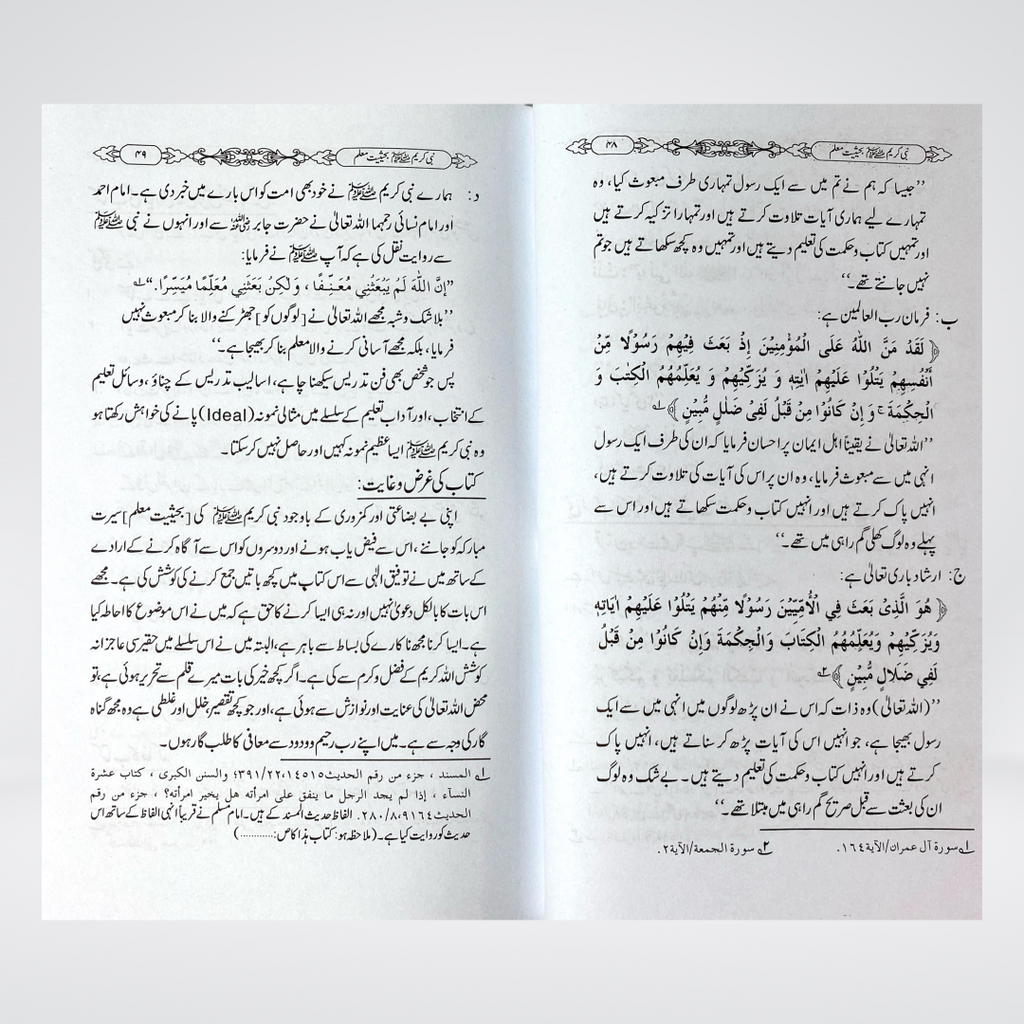 نبی کریم ﷺ بحیثیت معلم
۴۸
’’جیسا کہ ہم نے تم میں سے ایک رسول تمہاری طرف مبعوث کیا، وہ
تمہارے لیے ہماری آیات تلاوت کرتے ہیں اور تمہارا تزکیہ کرتے ہیں
اور تمہیں کتاب و حکمت کی تعلیم دیتے ہیں اور تمہیں وہ کچھ سکھاتے ہیں جو تم
نہیں جانتے تھے۔‘‘
ب: فرمان رب العالمین ہے:
﴿لَقَدْ مَنَّ اللّٰهُ عَلَى الْمُؤْمِنِيْنَ إِذْ بَعَثَ فِيْهِمْ رَسُوْلًا مِّنْ
أَنْفُسِهِمْ يَتْلُوْا عَلَيْهِمْ اٰيٰتِهٖ وَ يُزَكِّيْهِمْ وَ يُعَلِّمُهُمُ الْكِتٰبَ وَ
الْحِكْمَةَ ۚ وَ إِنْ كَانُوْا مِنْ قَبْلُ لَفِيْ ضَلٰلٍ مُّبِيْنٍ﴾ ۱؎
’’اللہ تعالیٰ نے یقیناً اہل ایمان پر احسان فرمایا کہ ان کی طرف ایک رسول
انہی میں سے مبعوث فرمایا، وہ ان پر اس کی آیات کی تلاوت کرتے ہیں،
انہیں پاک کرتے ہیں اور انہیں کتاب و حکمت سکھاتے ہیں اور اس سے
پہلے وہ لوگ کھلی گم راہی میں تھے۔‘‘
ج: ارشاد باری تعالیٰ ہے:
﴿هُوَ الَّذِىْ بَعَثَ فِي الْأُمِّيِّيْنَ رَسُوْلًا مِّنْهُمْ يَتْلُوْا عَلَيْهِمْ اٰيَاتِهٖ
وَيُزَكِّيْهِمْ وَيُعَلِّمُهُمُ الْكِتَابَ وَالْحِكْمَةَ وَإِنْ كَانُوْا مِنْ قَبْلُ
لَفِي ضَلَالٍ مُّبِيْنٍ﴾ ۲؎
’’(اللہ تعالیٰ) وہ ذات کہ اس نے ان پڑھ لوگوں میں انہی میں سے ایک
رسول بھیجا ہے، جو انہیں اس کی آیات پڑھ کر سناتے ہیں، انہیں پاک
کرتے ہیں اور انہیں کتاب و حکمت کی تعلیم دیتے ہیں۔ بے شک وہ لوگ
ان کی بعثت سے قبل صریح گم راہی میں مبتلا تھے۔‘‘
۱؎ سورة آل عمران/الآية ۱٦٤. ۲؎ سورة الجمعة/الآية ۲.
نبی کریم ﷺ بحیثیت معلم
۴۹
د: ہمارے نبی کریم ﷺ نے خود بھی امت کو اس بارے میں خبر دی ہے۔ امام احمد
اور امام نسائی رحمہما اللہ تعالیٰ نے حضرت جابر رضی اللہ عنہ سے اور انہوں نے نبی ﷺ
سے روایت نقل کی ہے کہ آپ ﷺ نے فرمایا:
”إِنَّ اللّٰهَ لَمْ يَبْعَثْنِي مُعَنِّفًا ، وَلٰكِنْ بَعَثَنِي مُعَلِّمًا مُيَسِّرًا.“ ۱؎
’’بلاشک و شبہ مجھے اللہ تعالیٰ نے [لوگوں کو] جھڑکنے والا بنا کر مبعوث نہیں
فرمایا، بلکہ مجھے آسانی کرنے والا معلم بنا کر بھیجا ہے۔‘‘
پس جو شخص بھی فن تدریس سیکھنا چاہے، اسالیب تدریس کے چناؤ، وسائل تعلیم
کے انتخاب، اور آداب تعلیم کے سلسلے میں مثالی نمونہ (Ideal) پانے کی خواہش رکھتا ہو
وہ نبی کریم ﷺ ایسا عظیم نمونہ کہیں اور حاصل نہیں کر سکتا۔
کتاب کی غرض و غایت:
اپنی بے بضاعتی اور کمزوری کے باوجود نبی کریم ﷺ کی [بحیثیت معلم] سیرت
مبارکہ کو جاننے، اس سے فیض یاب ہونے اور دوسروں کو اس سے آگاہ کرنے کے ارادے
کے ساتھ میں نے توفیق الٰہی سے اس کتاب میں کچھ باتیں جمع کرنے کی کوشش کی ہے۔ مجھے
اس بات کا بالکل دعویٰ نہیں اور نہ ہی ایسا کرنے کا حق ہے کہ میں نے اس موضوع کا احاطہ کیا
ہے۔ ایسا کرنا مجھ ناکارے کی بساط سے باہر ہے، البتہ میں نے اس سلسلے میں حقیر سی عاجزانہ
کوشش اللہ کریم کے فضل و کرم سے کی ہے۔ اگر کچھ خیر کی بات میرے قلم سے تحریر ہوئی ہے، تو
محض اللہ تعالیٰ کی عنایت اور نوازش سے ہوئی ہے، اور جو کچھ تقصیر، خلل اور غلطی ہے وہ مجھ گناہ
گار کی وجہ سے ہے۔ میں اپنے رب رحیم و ودود سے معافی کا طلب گار ہوں۔
۱؎ المسند ، جزء من رقم الحديث ۱٤٥۱٥، ۲۲/۳۹۱؛ والسنن الكبرى ، كتاب عشرة
النسآء ، إذا لم يجد الرجل ما ينفق على امرأته هل يخير امرأته؟ ، جزء من رقم
الحديث ۹۱٦٤، ۸/۲۸۰. الفاظ حدیث المسند کے ہیں۔ امام مسلم نے قریباً انہی الفاظ کے ساتھ اس
حدیث کو روایت کیا ہے۔ (ملاحظہ ہو: کتاب ہذا کا ص:............)